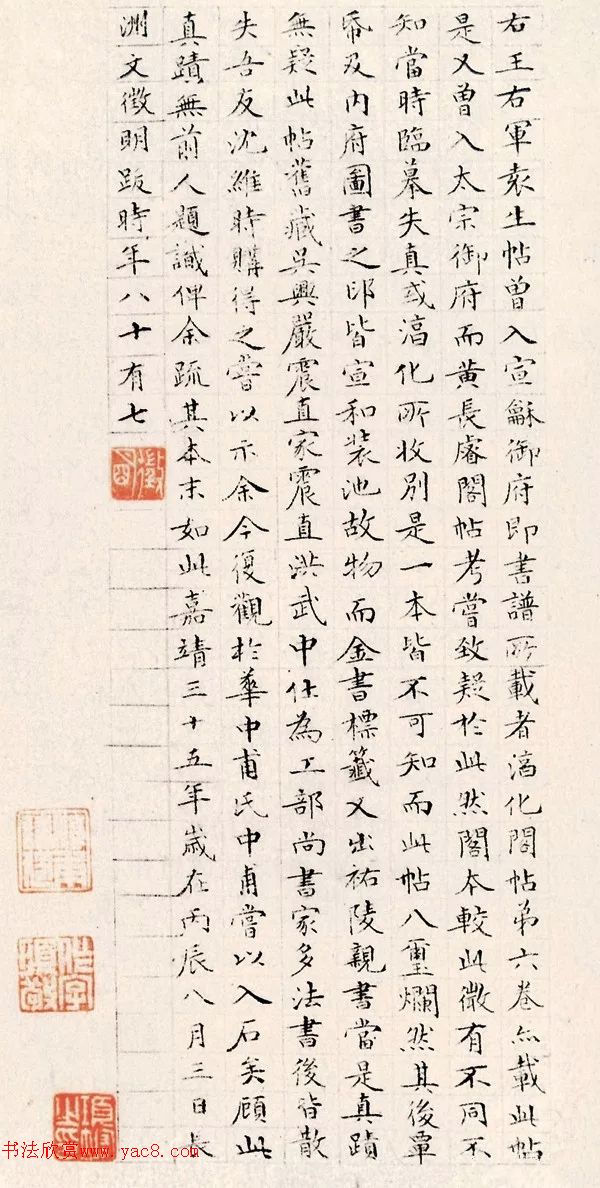 右王右軍袁生帖曾入宣龢御府即書譜所載者淳化閣帖弟六卷亦載此帖
是又曾入太宗御府而黄長睿閣帖考嘗致疑於此然閣本較此微有不同不
知當時臨摹失真或淳化所收別是一本皆不可知而此帖八璽爛然其後覃
帋及内府圖書之印皆宣和裝池故物而金書標籤又出祐陵親書當是真蹟
無疑此帖舊藏吳興嚴震直家震直洪武中仕為工部尚書家多法書後皆散
失吾友沈維時購得之嘗以示余今復觀於華中甫氏中甫嘗以入石矣顧此
真蹟無前人題識俾余疏其本末如此嘉靖三十五年歲在丙辰八月三日長
洲文徵明跋時年八十有七
徵明
书法欣赏www.yac8.com